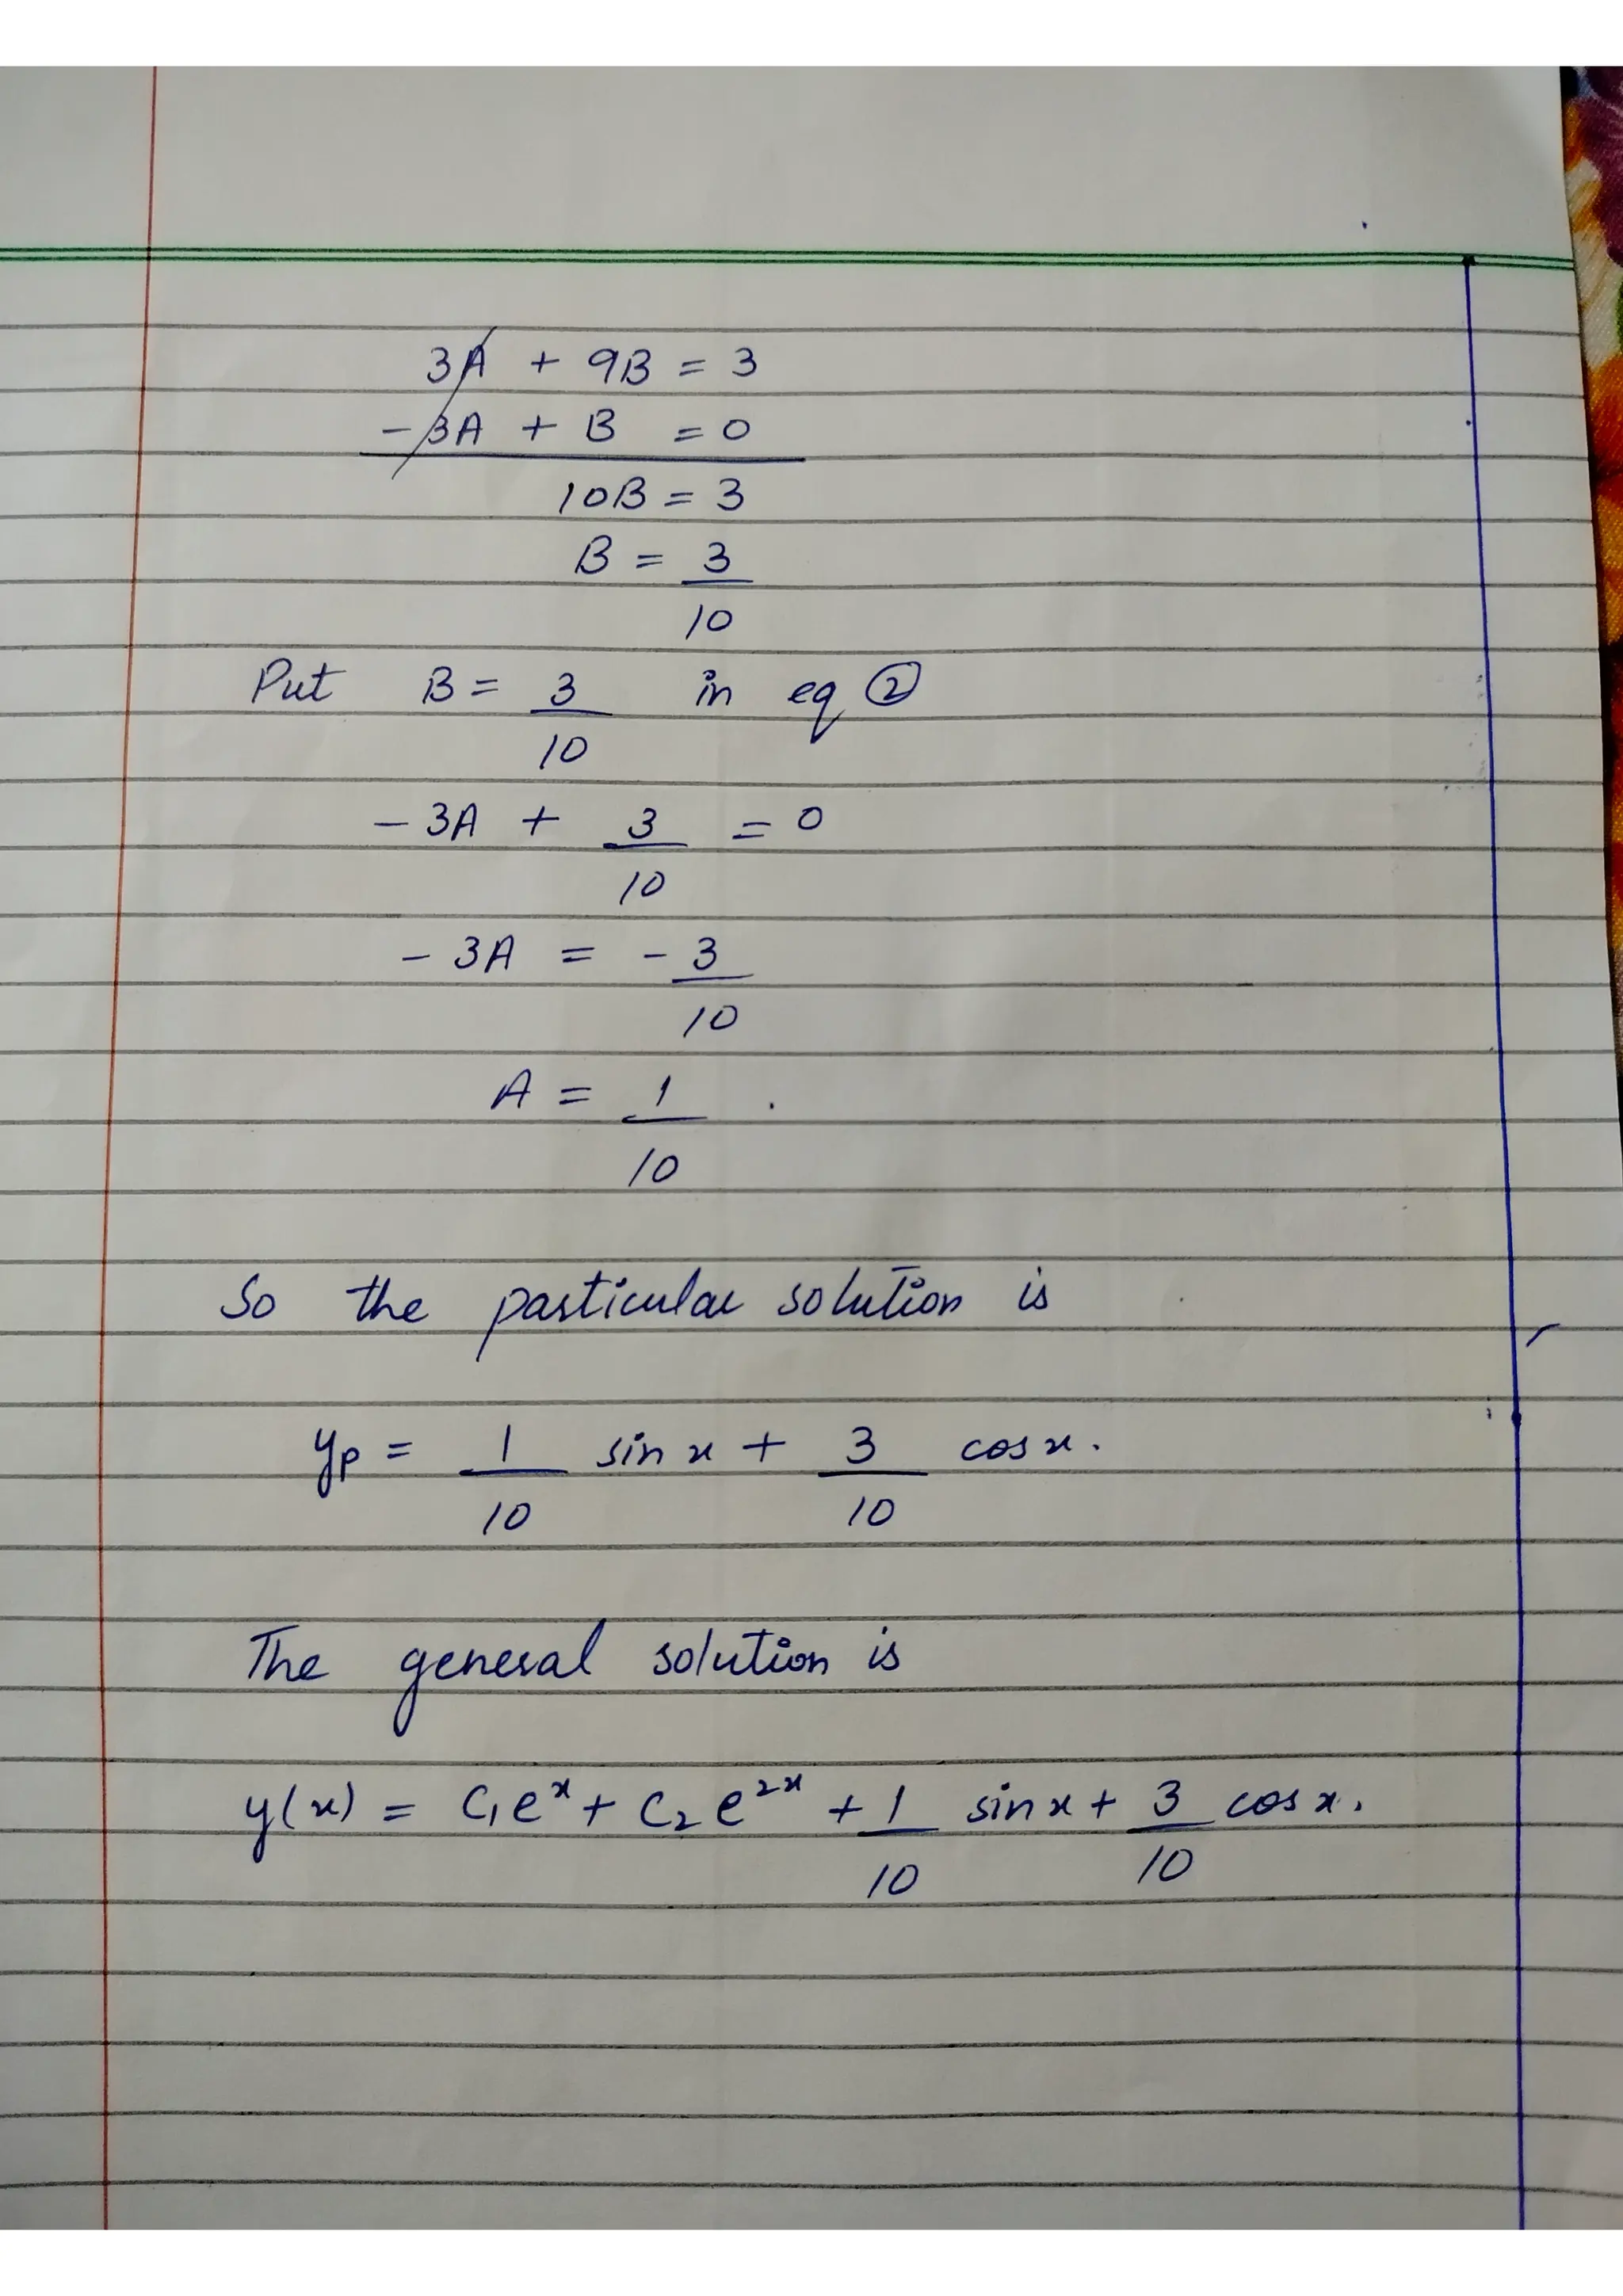 3A + 9B = 3
- 3A + B = 0
10B = 3
B = 3
10
Put B = 3 in eq ②
10
- 3A + 3 = 0
10
- 3A = - 3
10
A = 1
10
So the particular solution is
yp = 1 sin x + 3 cos x.
10 10
The general solution is
y(x) = C₁eˣ + C₂e²ˣ + 1 sin x + 3 cos x.
10 10